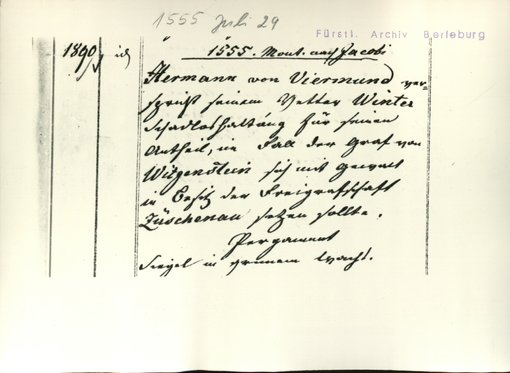 1555 Juli 29
Fürstl. Archiv Berleburg
1890 id
1555. Mont. nach Jacobi
Hermann von Viermund ver-
spricht seinem Vetter Winter
Schadloshaltung für seinen
Antheil, im Fall der Graf von
Witgenstein sich mit Gewalt
in Besitz der Freigrafschaft
Züschenau setzen sollte.
Pergament
Siegel in grünem Wachs.